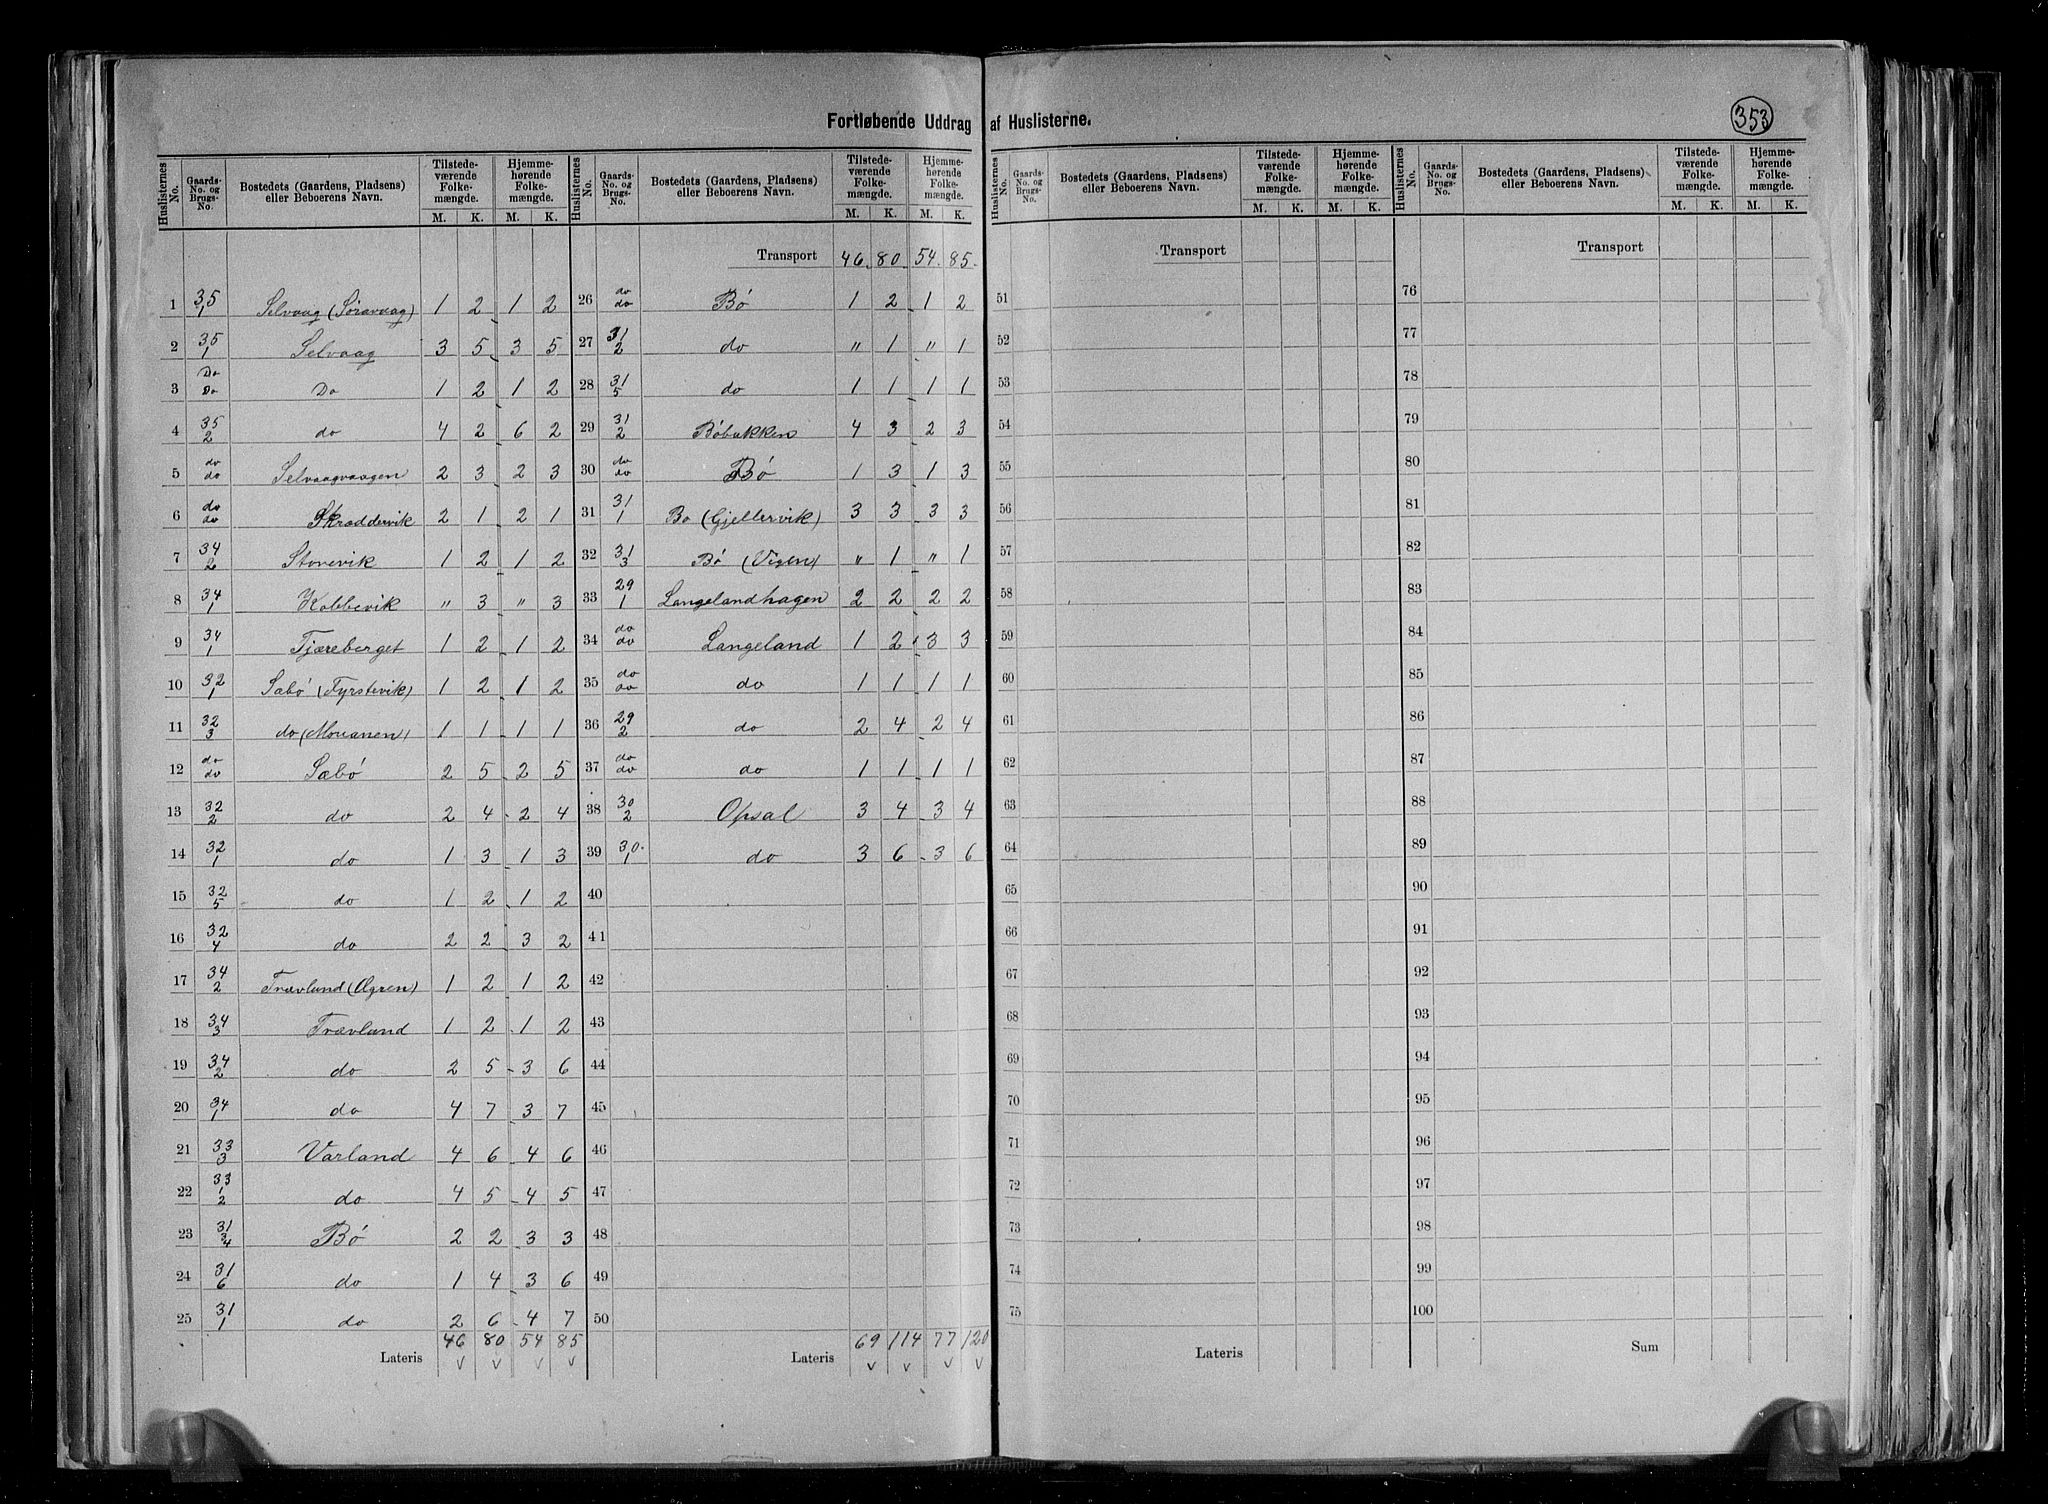 Fortløbende Uddrag af Huslisterne.
353
Huslisternes No. | Gaards-No. og Brugs-No. | Bostedets (Gaardens, Pladsens) eller Beboerens Navn. | Tilstedeværende Folkemængde. M. K. | Hjemmehørende Folkemængde. M. K.
1 35/1 Selvaag (Søravaag) 1 2 1 2
2 35/1 Selvaag 3 5 3 5
3 Do/Do Do 1 2 1 2
4 35/2 do 4 2 6 2
5 do/do Selvaagvaagen 2 3 2 3
6 do/do Skraddervik 2 1 2 1
7 34/2 Storevik 1 2 1 2
8 34/1 Kobbevik " 3 " 3
9 34/1 Tjæreberget 1 2 1 2
10 32/1 Sæbø (Fyrstevik) 1 2 1 2
11 32/3 do (Mouanen) 1 1 1 1
12 do/do Sæbø 2 5 2 5
13 32/2 do 2 4 2 4
14 32/1 do 1 3 1 3
15 32/5 do 1 2 1 2
16 32/4 do 2 2 3 2
17 34/2 Trævland (Øgren) 1 2 1 2
18 34/3 Trævland 1 2 1 2
19 34/2 do 2 5 3 6
20 34/1 do 4 7 3 7
21 33/3 Varland 4 6 4 6
22 33/1/2 do 4 5 4 5
23 31/3/4 Bø 2 2 3 3
24 31/6 do 1 4 3 6
25 31/1 do 2 6 4 7
Lateris 46 80 54 85
Huslisternes No. | Gaards-No. og Brugs-No. | Bostedets (Gaardens, Pladsens) eller Beboerens Navn. | Tilstedeværende Folkemængde. M. K. | Hjemmehørende Folkemængde. M. K.
Transport 46 80 54 85
26 do/do Bø 1 2 1 2
27 31/2 do " 1 " 1
28 31/5 do 1 1 1 1
29 31/2 Bøbakken 4 3 2 3
30 do/do Bø 1 3 1 3
31 31/1 Bø (Gjellervik) 3 3 3 3
32 31/3 Bø (Vigen) " 1 " 1
33 29/1 Langelandhagen 2 2 2 2
34 do/do Langeland 1 2 3 3
35 do/do do 1 1 1 1
36 29/2 do 2 4 2 4
37 do/do do 1 1 1 1
38 30/2 Opsal 3 4 3 4
39 30/1 do 3 6 3 6
40
41
42
43
44
45
46
47
48
49
50
Lateris 69 114 77 120
Huslisternes No. | Gaards-No. og Brugs-No. | Bostedets (Gaardens, Pladsens) eller Beboerens Navn. | Tilstedeværende Folkemængde. M. K. | Hjemmehørende Folkemængde. M. K.
Transport
51
52
53
54
55
56
57
58
59
60
61
62
63
64
65
66
67
68
69
70
71
72
73
74
75
Lateris
Huslisternes No. | Gaards-No. og Brugs-No. | Bostedets (Gaardens, Pladsens) eller Beboerens Navn. | Tilstedeværende Folkemængde. M. K. | Hjemmehørende Folkemængde. M. K.
Transport
76
77
78
79
80
81
82
83
84
85
86
87
88
89
90
91
92
93
94
95
96
97
98
99
100
Sum